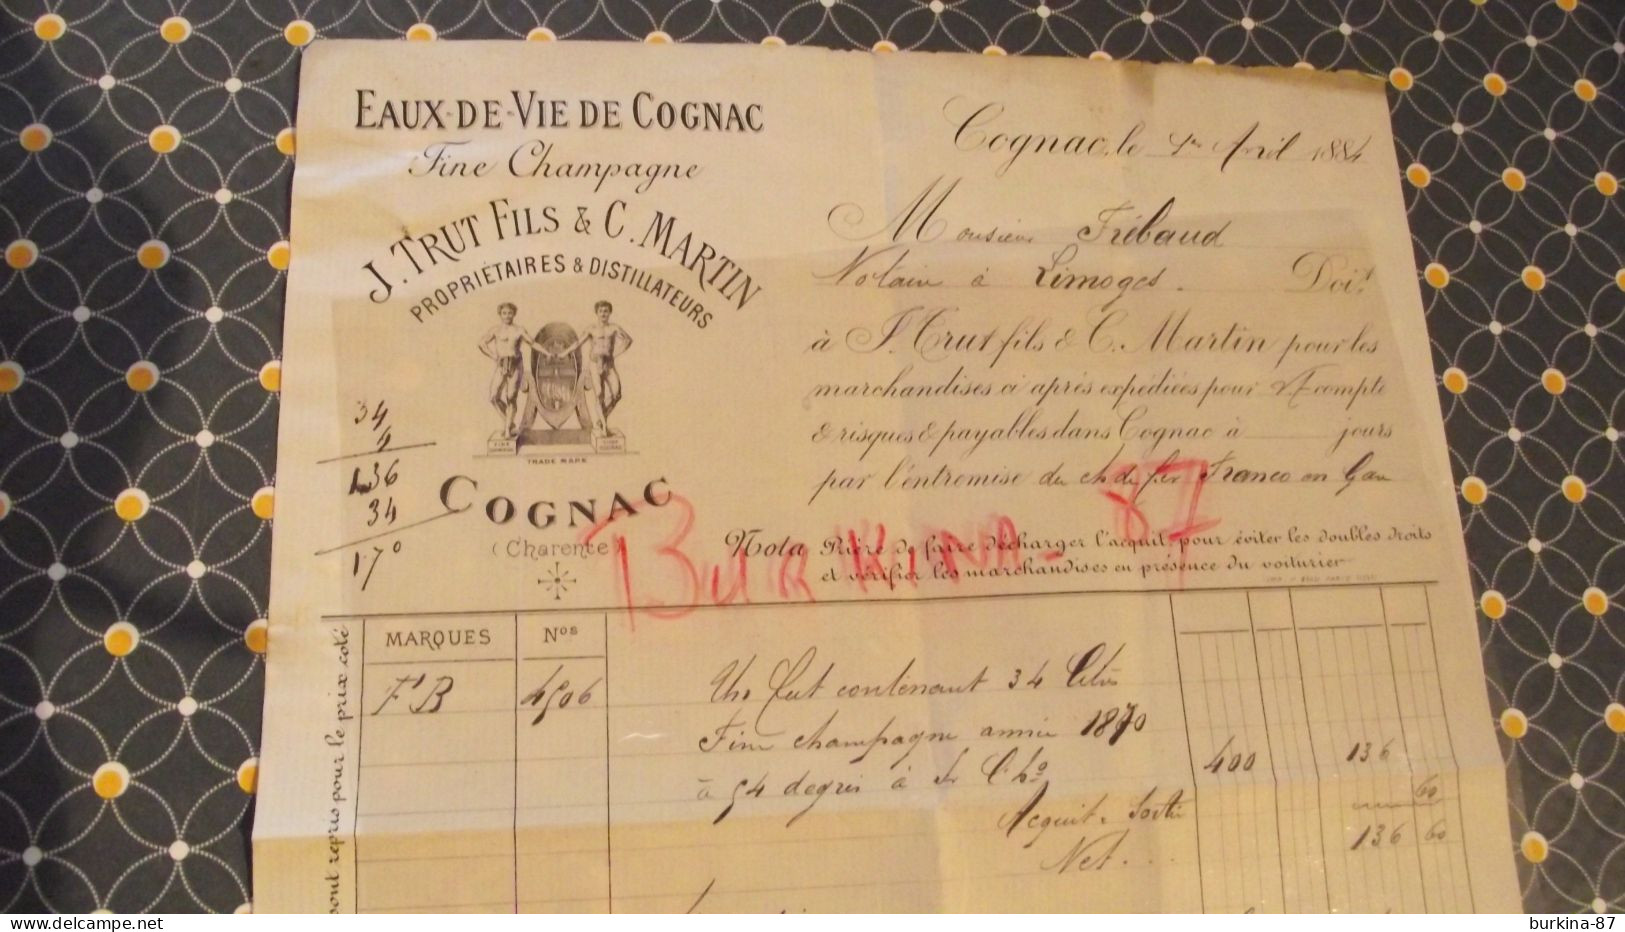 EAUX-DE-VIE DE COGNAC
Fine Champagne
J. TRUT FILS & C. MARTIN
PROPRIÉTAIRES & DISTILLATEURS
TRADE MARK
COGNAC
(Charente)
34
4
136
34
170
Cognac, le 1er Avril 1884
Monsieur Frébaud
Notaire à Limoges. Doit
à J. Trut fils & C. Martin pour les
marchandises ci après expédiées pour compte
& risques & payables dans Cognac à jours
par l'entremise du ch de fer Franco en Gare
Nota Prière de faire décharger l'acquit, pour éviter les doubles droits
et vérifier les marchandises en présence du voiturier
BURKINA-87
MARQUES Nos
F B 4506
Un fut contenant 34 Litres
Fine champagne année 1870
à 54 degrés à 400 136
Acquit. Sortie 60
Net... 136 60
sont repris pour le prix coté
burkina-87